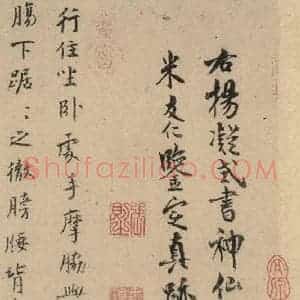 右楊凝式書神仙
米友仁鑒定真跡
行住坐卧處手摩脇與
腸下踞〻之徹膀腰背
Shufaziliao.com